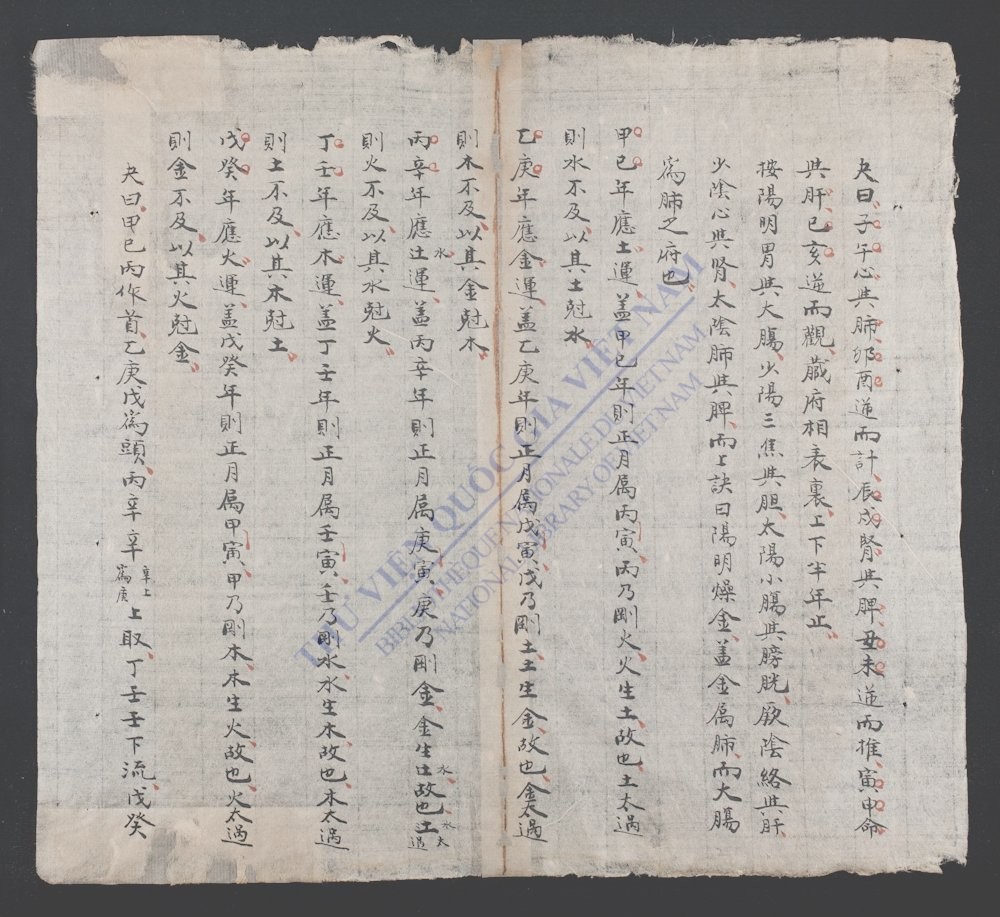 夬曰子午心共肺卯酉逆而計辰戌腎共脾丑未逆而推寅申命
共肝巳亥逆而觀臟府相表裏上下半年正
按陽明胃共大腸少陽三焦共胆太陽小腸共膀胱厥陰絡共肝
少陰心共腎太陰肺共脾而上訣曰陽明燥金盖金属肺而大腸
為肺之府也
甲己年應土運盖甲己年則正月属丙寅丙乃剛火火生土故也土太過
則水不及以其土尅水
乙庚年應金運盖乙庚年則正月属戊寅戊乃剛土土生金故也金太過
則木不及以其金尅木
丙辛年應土水運盖丙辛年則正月属庚寅庚乃剛金金生土水故也土水太過
則火不及以其水尅火
丁壬年應木運盖丁壬年則正月属壬寅壬乃剛水水生木故也木太過
則土不及以其木尅土
戊癸年應火運盖戊癸年則正月属甲寅甲乃剛木木生火故也火太過
則金不及以其火尅金
夬曰甲己丙作首乙庚戊為頭丙辛辛辛上為庚上取丁壬壬下流戊癸
THƯ VIỆN QUỐC GIA VIỆT NAM
BIBLIOTHEQUE NATIONALE DU VIETNAM
NATIONAL LIBRARY OF VIETNAM